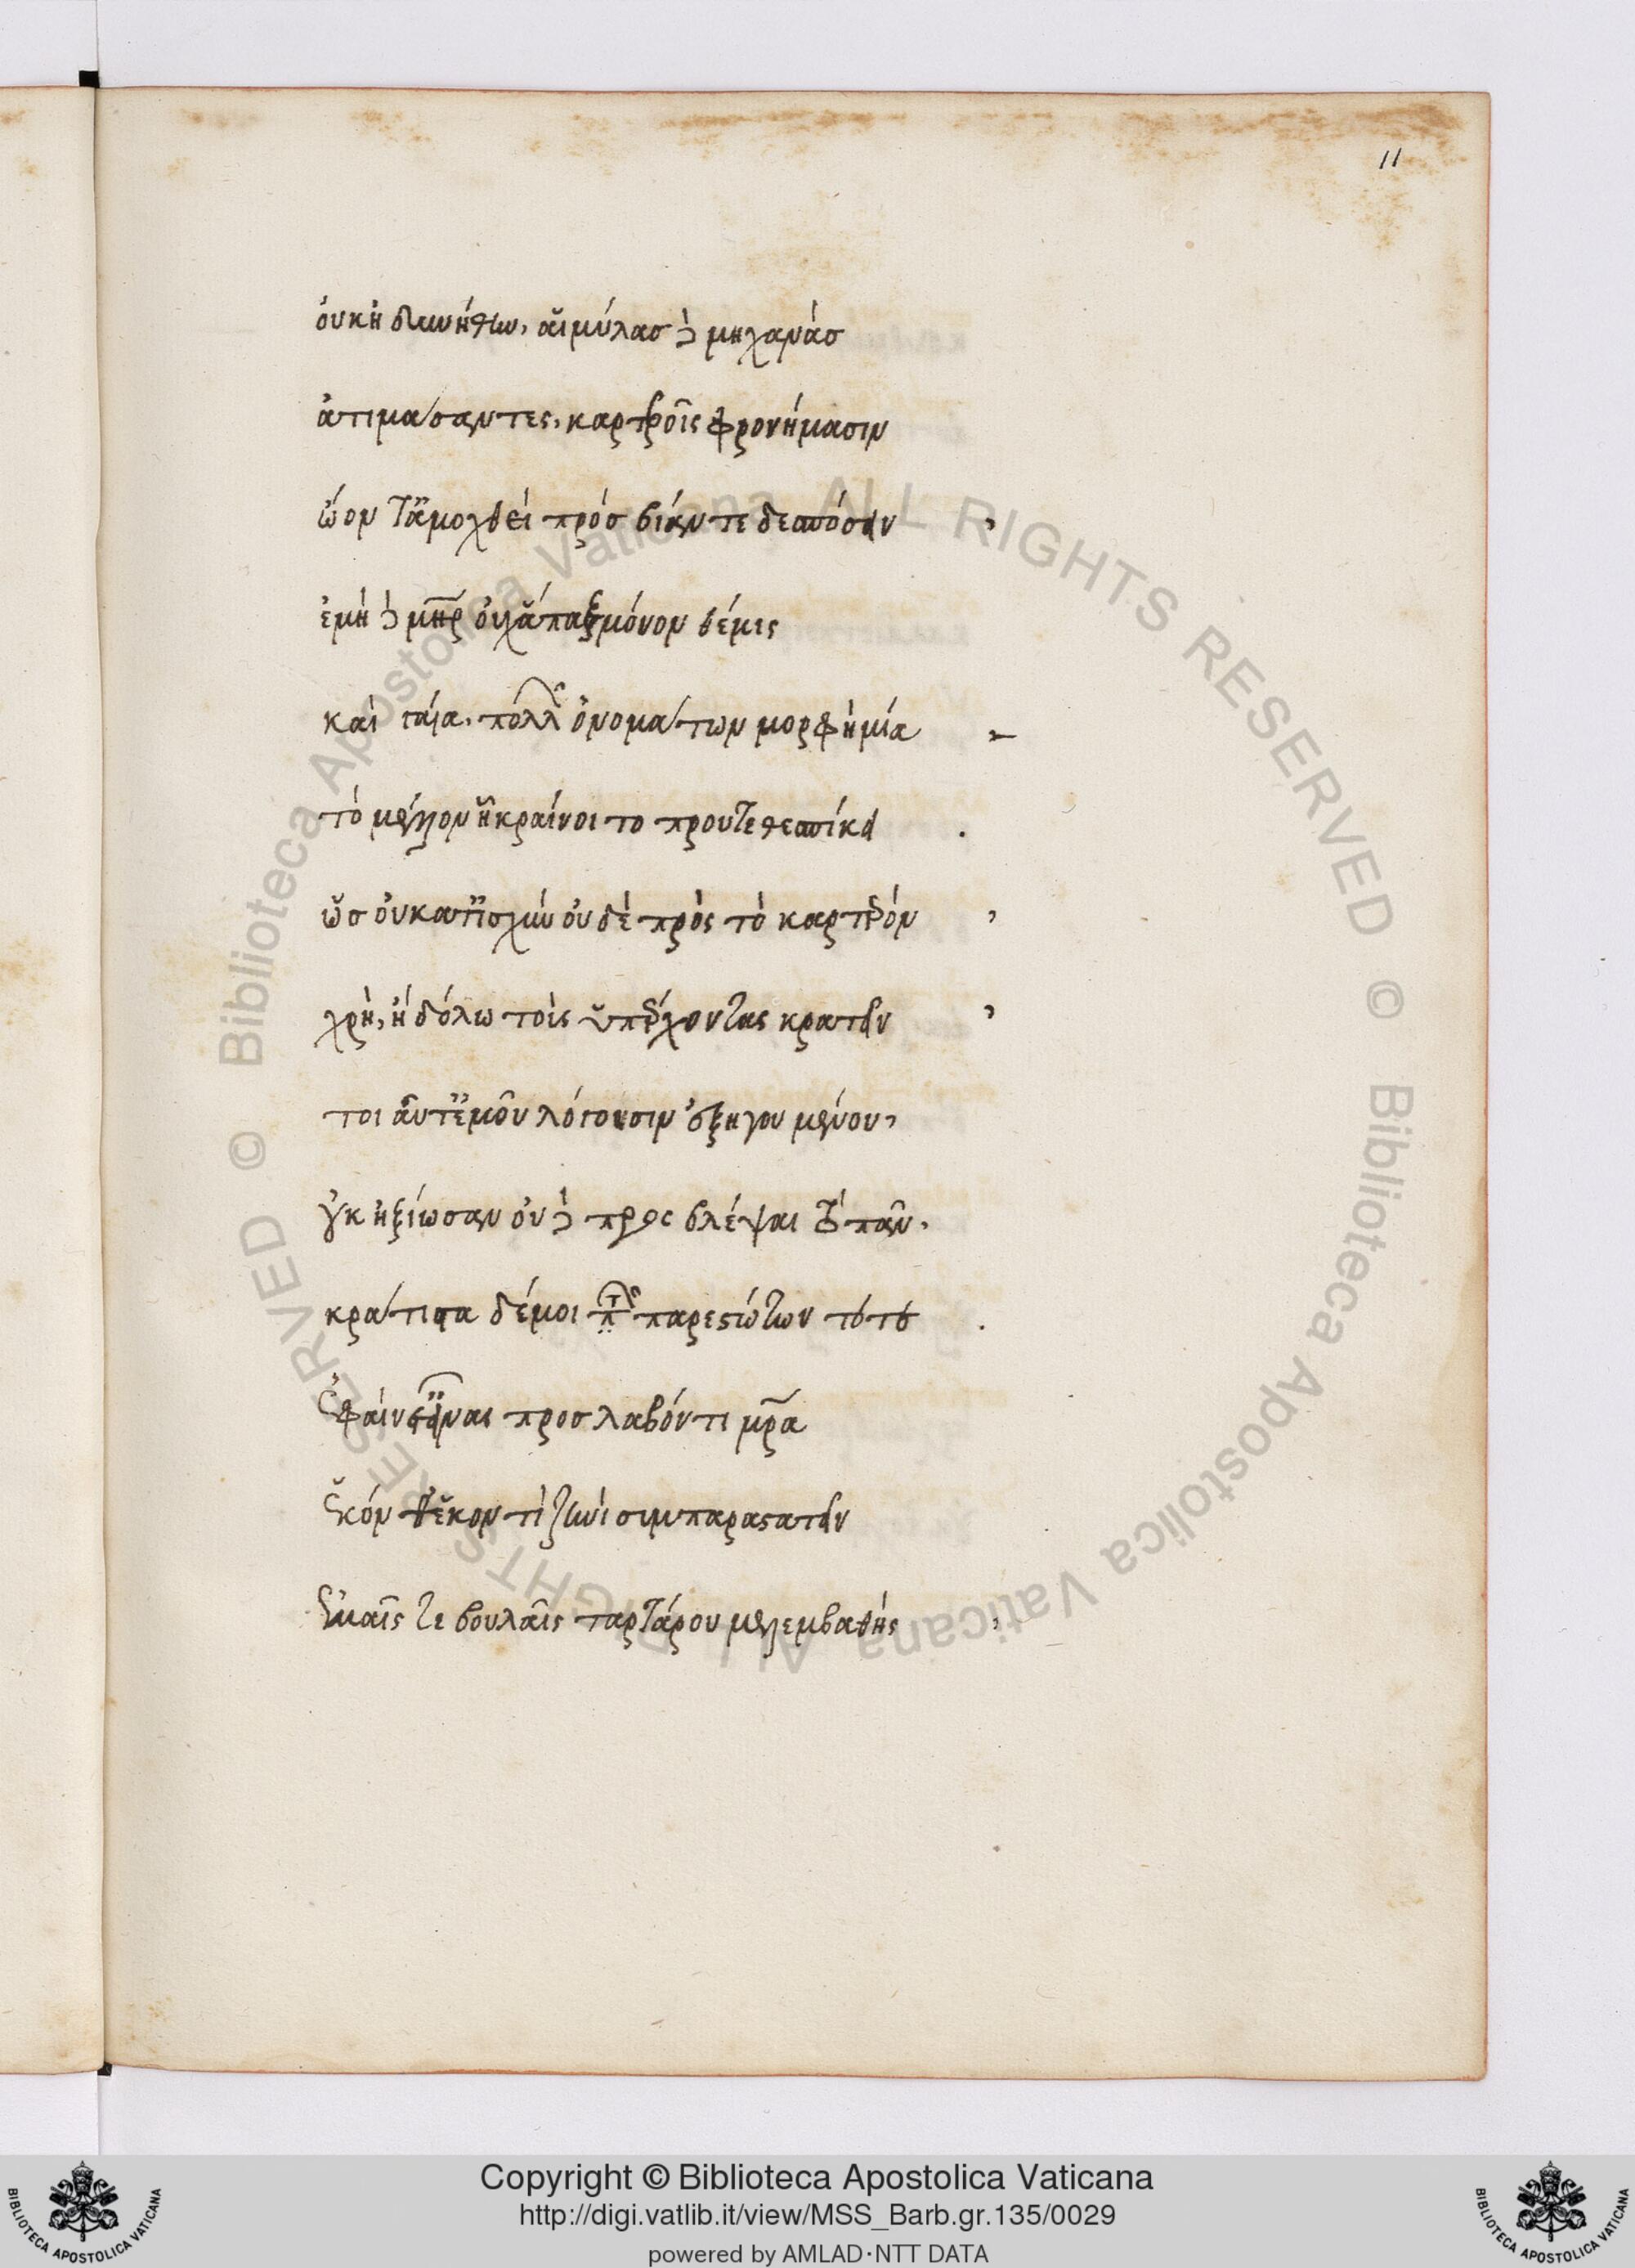 11
οὐκ ἠδυνήθην, αἱμύλας δὲ μηχανάς
ἀτιμάσαντες, καρτεροῖς φρονήμασιν
ᾤοντ' ἀμοχθεὶ πρὸς βίαν τε δεσπόσειν
ἐμὴ δὲ μήτηρ οὐχ ἅπαξ μόνον θέμις
καὶ γαῖα, πολλῶν ὀνομάτων μορφὴ μία
τὸ μέλλον ᾗ κραίνοιτο προυτεθεσπίκει
ὡς οὐ κατ' ἰσχὺν οὐδὲ πρὸς τὸ καρτερόν
χρὴ, ἢ δόλω τοὺς ὑπερέχοντας κρατεῖν
τοιαῦτ' ἐμοῦ λόγοισιν ἐξηγουμένου,
οὐκ ἠξίωσαν οὐδὲ προσβλέψαι τὸ πᾶν.
κράτιστα δέ μοι τῶν παρεστώτων τότε
ἐφαίνετ' εἶναι προσλαβόντι μητέρα
ἑκόνθ' ἑκόντι ζηνὶ συμπαραστατεῖν
ἐμαῖς τε βουλαῖς ταρτάρου μελεμβαθής
Copyright © Biblioteca Apostolica Vaticana
http://digi.vatlib.it/view/MSS_Barb.gr.135/0029
powered by AMLAD·NTT DATA